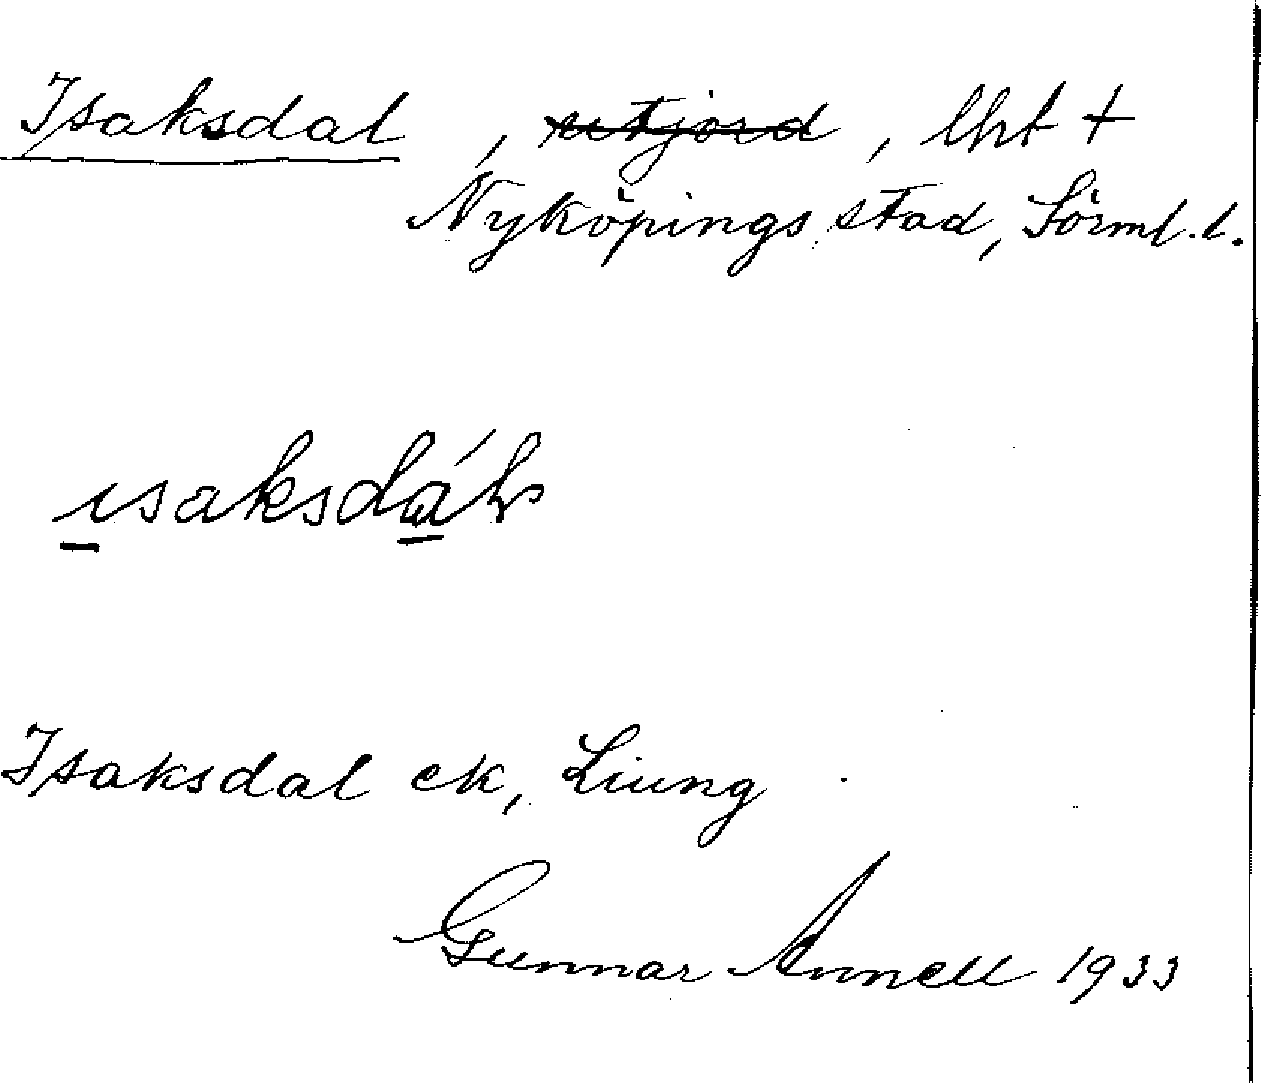 Isaksdal , utjord , lht +
Nyköpings stad, Sörml. l.
ısaksdál
Isaksdal ek, Liung
Gunnar Annell 1933